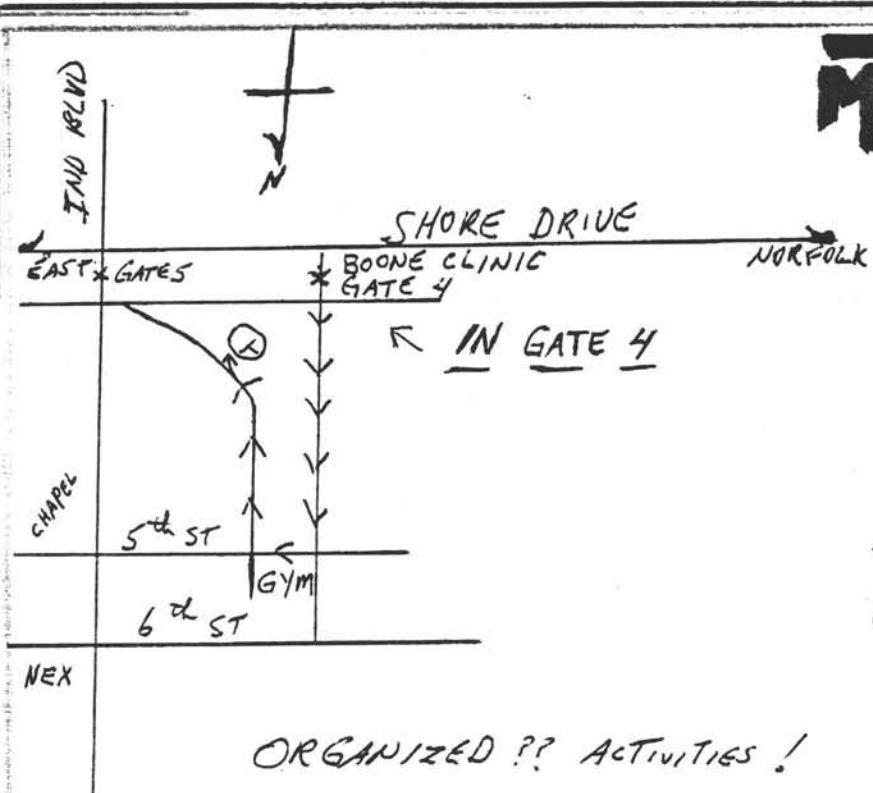 IND BLVD
N
M
SHORE DRIVE
EAST GATE5 BOONE CLINIC NORFOLK
GATE 4
IN GATE 4
CHAPEL
5th ST
GYM
6th ST
NEX
ORGANIZED ?? ACTIVITIES !